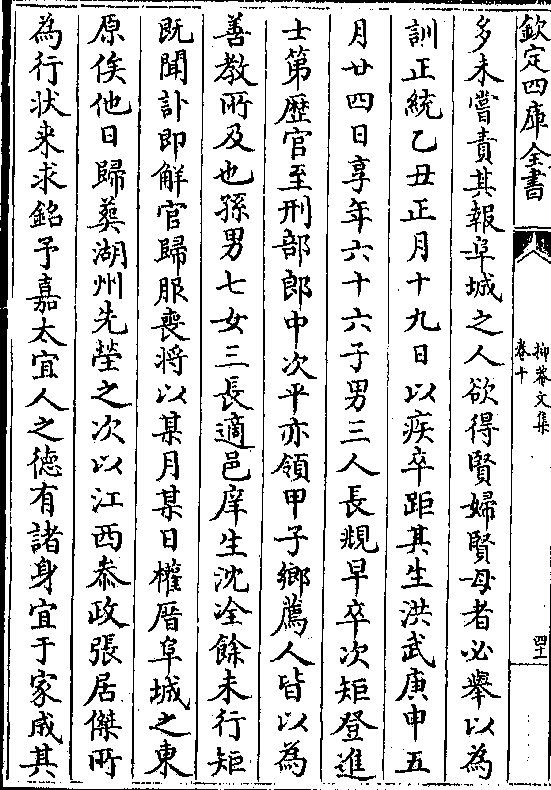 欽定四庫全書
抑菴文集
卷十
四十一
多未嘗責其報阜城之人欲得賢婦賢母者必舉以為
訓正統乙丑正月十九日以疾卒距其生洪武庚申五
月廿四日享年六十六子男三人長規早卒次矩登進
士第歷官至刑部郎中次平亦領甲子鄉薦人皆以為
善教所及也孫男七女三長適邑庠生沈淦餘未行矩
既聞訃即解官歸服喪將以某月某日權厝阜城之東
原俟他日歸葬湖州先塋之次以江西叅政張居傑所
為行狀来求銘予嘉太宜人之德有諸身宜于家成其